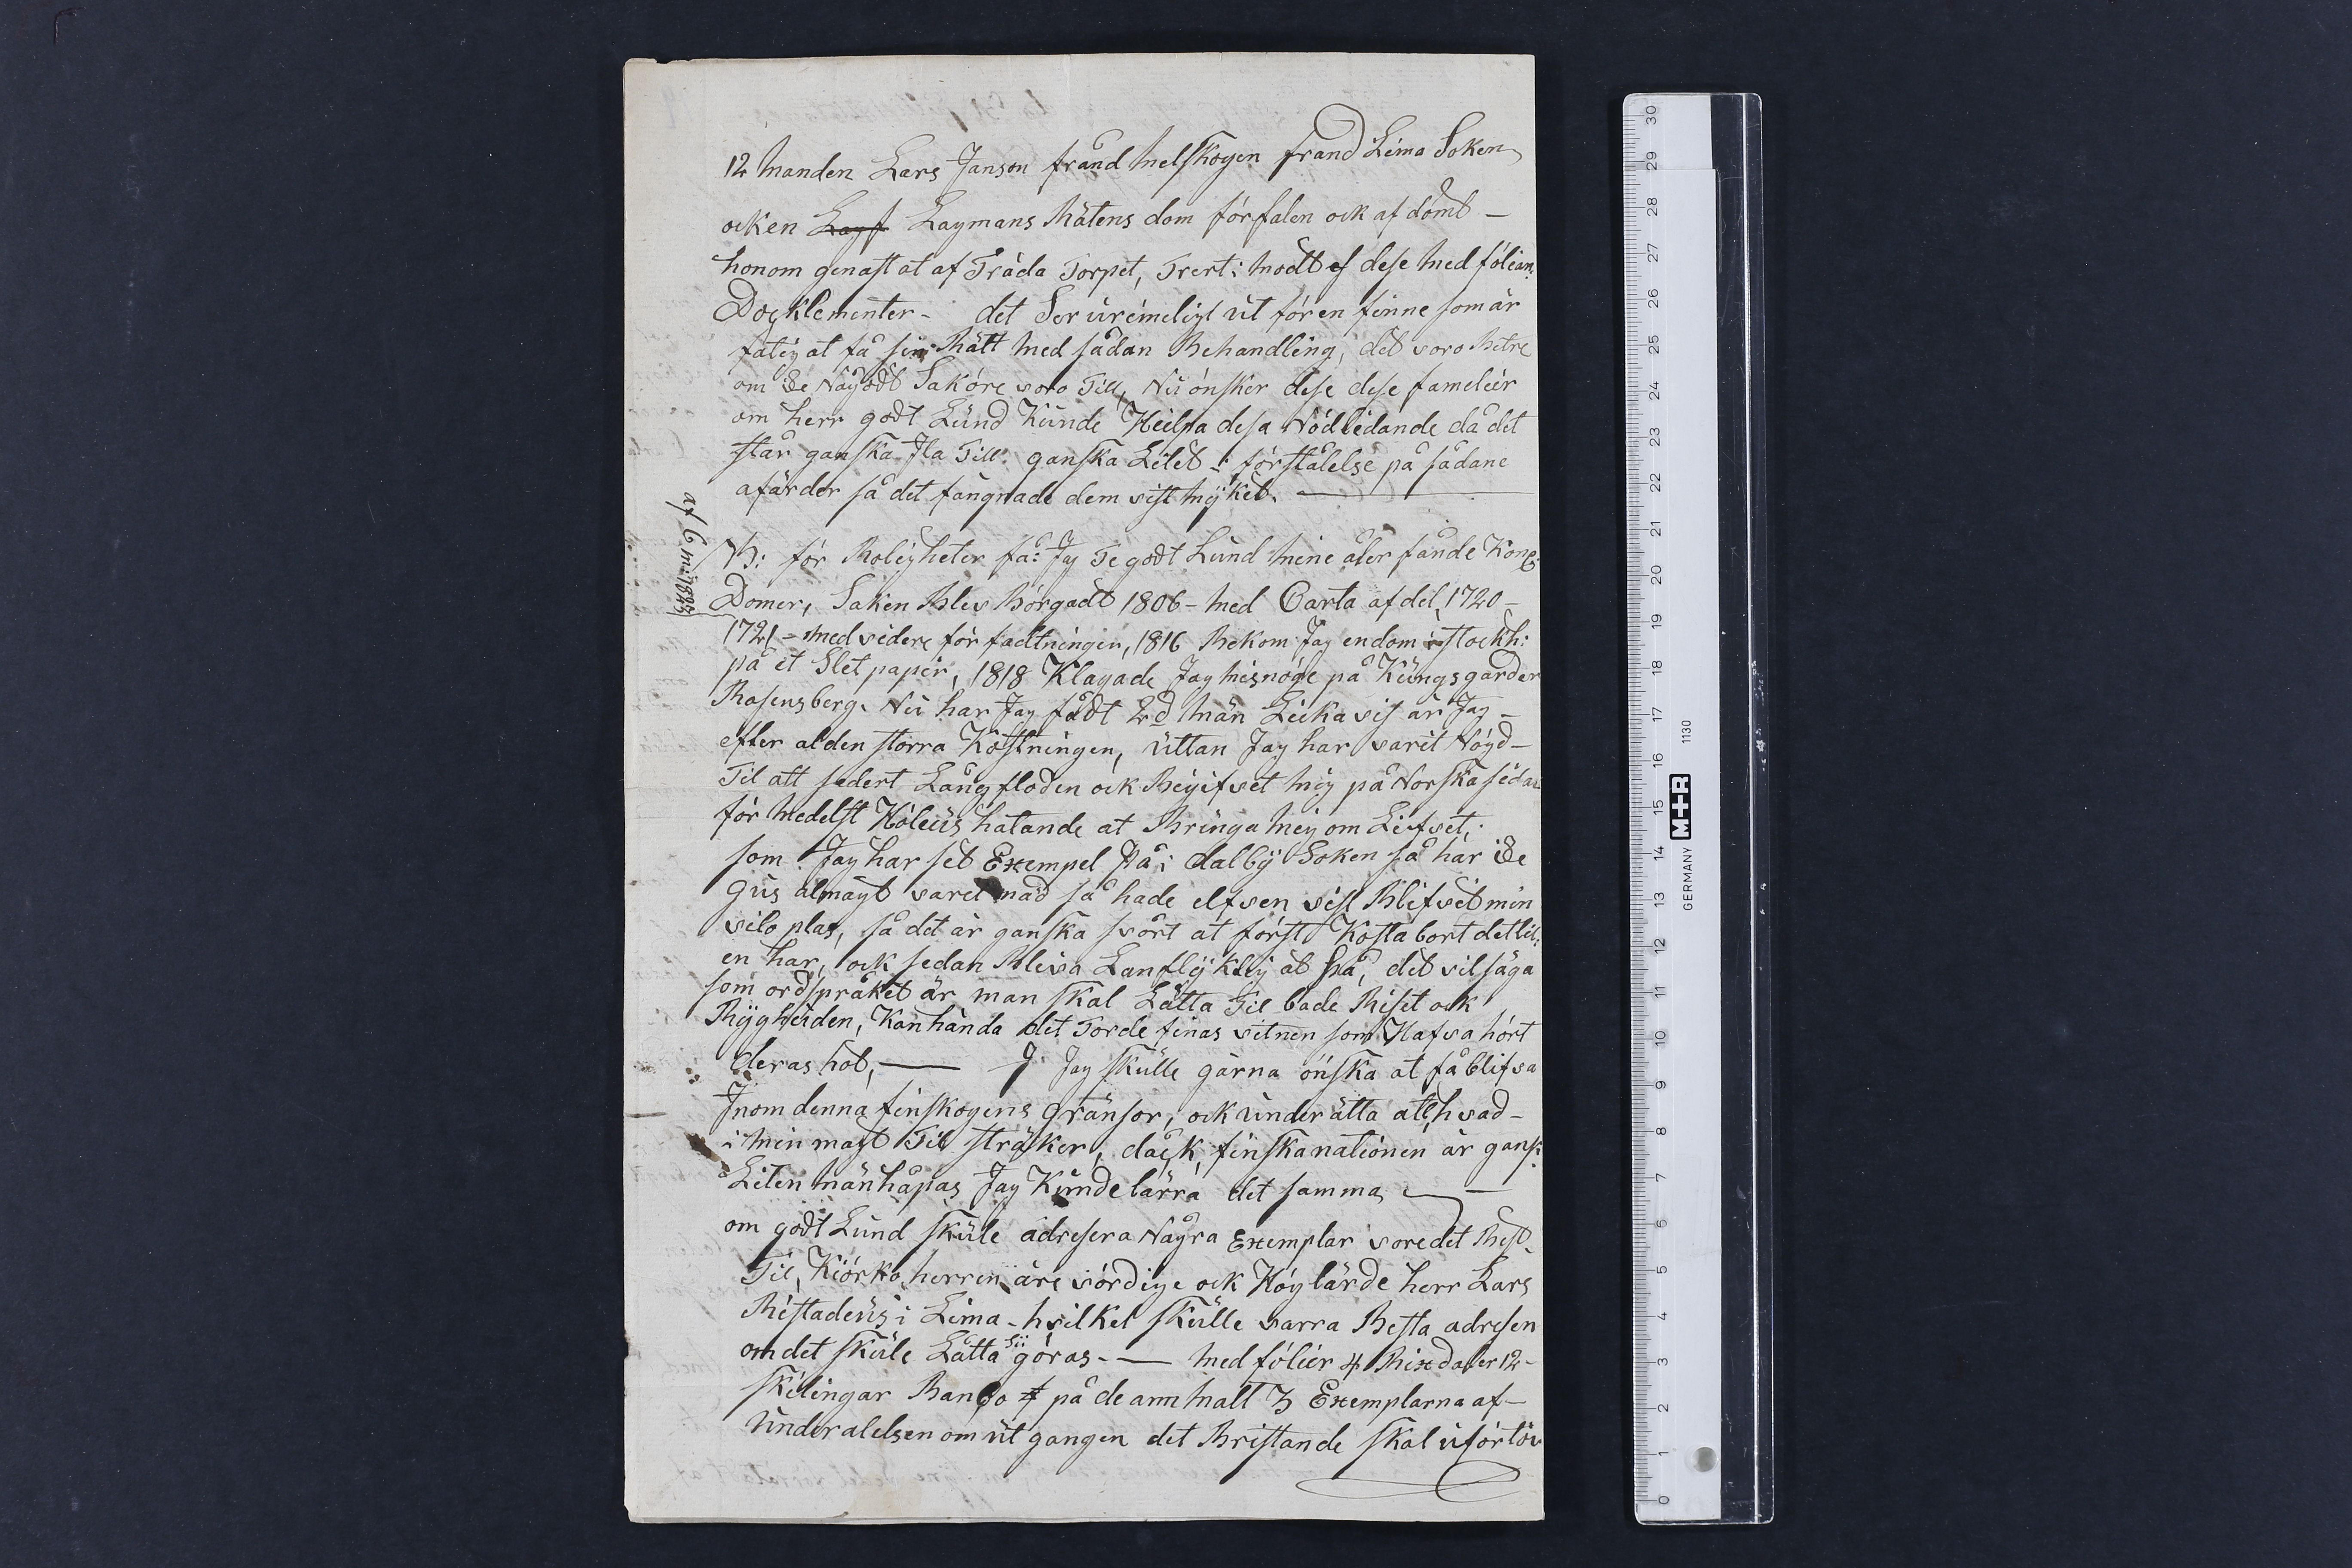 12 Manden Lars Janson frånd Melskogen frånd Lima Soken
ocken Lagmans Rätens dom förfalen ock af dömt –
honom genast at af Träda Torpet, Trert: modt dese Med fölian:
Docklementer – det Ser urimeligt ut för en finne som är
fatig at få sin Rätt Med sådan Behandling, det voro Betre
om de Någodt Saköre voro Till, Nu önsker dese dese fameliér
om herr godt Lund Kunde Heilpa desa Nödlidande då det
står ganska Ila Till ganska Litet i förstålelse på sådane
afärder så det fångnade dem vist mÿket. —
af 6 m: 1823
N: för Roligheter få: Jag Te godt Lund Mine åler fånde Kong:
Domer, Saken Blev Börgadt 1806 – Med Carta af del, 1720 –
1721 – Med videre för fadtningen, 1816 Bekom Jag en dom i Stockh:
på et Slet papir, 1818 Klagade Jag Misnöge på Kungsgården
Rosensberg. Nu har Jag fådt Män Lika vis är Jag –
efter al den storra Kostningen, uttan Jag har varit Nögd –
Til att federt Långfloden ock Begifvet Mig på Norska sidan
för Medelst Höleus hatande at Bringa Meg om Lifvet,
som Jag har set Exempel på i dalbÿ Soken så här de
Gus almagt varet nåd så hade elfven vist Blifvet min
vilo plas, så det är ganska svårt at först Kosta bort det lit:
en har, ock sedan Bliva Lanflÿktig åt på, det vil säga
som ordspråket är man skal Låtta Til bade Riset ock
Rÿgheiden, Kanhända det Torde finas vitnen som Hafva hört
deras hot, — Jag skulle gärna önska at få blifva
Jnom denna finskogens Gränsor, ock underätta alt hvad –
i Min magt Til sträker, dåck finska nationen är gansk:
Liten män håpas Jag Kunde lärra det samma —
om godt Lund skule adresera Några Exemplar vore det Best
Til, Kiörko herren äre vördige ock Höglärde herr Lars
Ristadeus i Lima – hvilket skulle varra Besta adresen
om det skule Låtta sÿ göras. — Med föliér 4 Rixdaler 12 –
skilingar Banco på de ann Malt 3 Exemplarna af –
Underalelsen om ut gangen det Bristande skal uförtöv